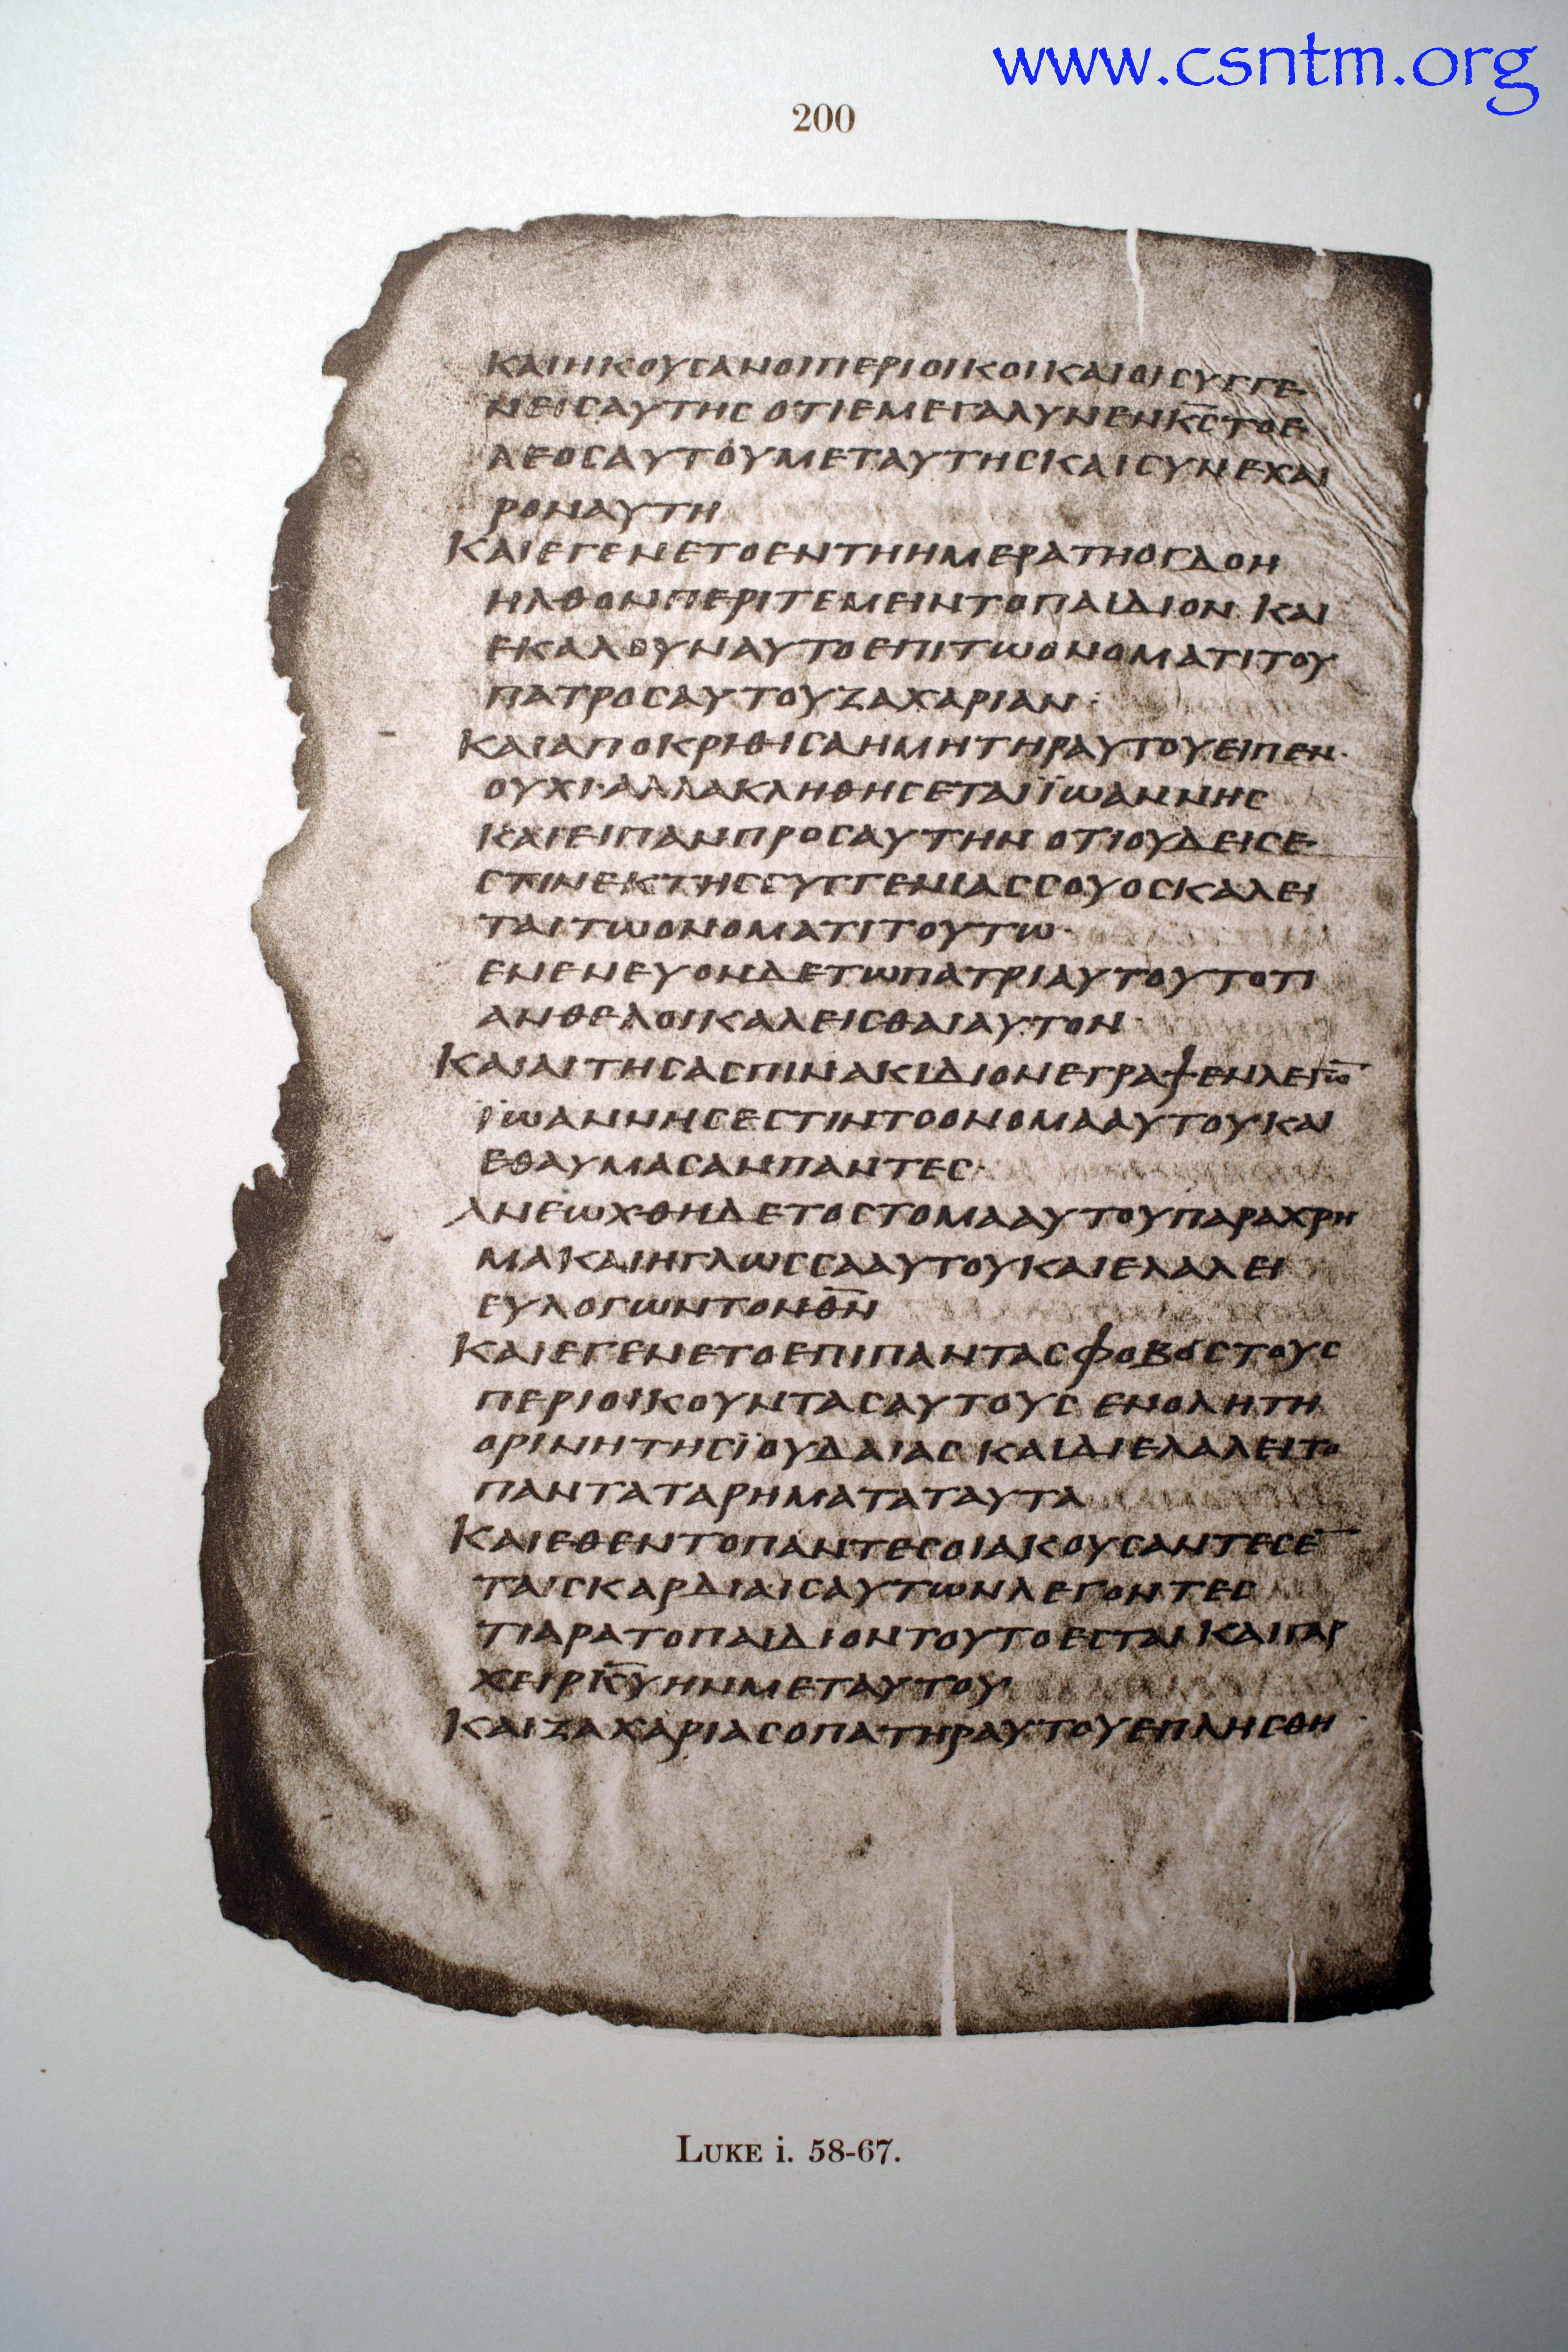 www.csntm.org
200
ΚΑΙΗΚΟΥϹΑΝΟΙΠΕΡΙΟΙΚΟΙΚΑΙΟΙϹΥΓΓΕ
ΝΕΙϹΑΥΤΗϹ ΟΤΙΕΜΕΓΑΛΥΝΕΝΚ̅Ϲ̅ΤΟΕ
ΛΕΟϹΑΥΤΟΥΜΕΤΑΥΤΗϹΚΑΙϹΥΝΕΧΑΙ
ΡΟΝΑΥΤΗ
ΚΑΙΕΓΕΝΕΤΟΕΝΤΗΗΜΕΡΑΤΗΟΓΔΟΗ
ΗΛΘΟΝΠΕΡΙΤΕΜΕΙΝΤΟΠΑΙΔΙΟΝ ΚΑΙ
ΕΚΑΛΟΥΝΑΥΤΟΕΠΙΤΩΟΝΟΜΑΤΙΤΟΥ
ΠΑΤΡΟϹΑΥΤΟΥΖΑΧΑΡΙΑΝ:
ΚΑΙΑΠΟΚΡΙΘΙϹΑΗΜΗΤΗΡΑΥΤΟΥΕΙΠΕΝ·
ΟΥΧΙ·ΑΛΛΑΚΛΗΘΗϹΕΤΑΙΪΩΑΝΝΗϹ
ΚΑΙΕΙΠΑΝΠΡΟϹΑΥΤΗΝ ΟΤΙΟΥΔΕΙϹΕ
ϹΤΙΝΕΚΤΗϹϹΥΓΓΕΝΙΑϹϹΟΥΟϹΚΑΛΕΙ
ΤΑΙΤΩΟΝΟΜΑΤΙΤΟΥΤΩ·
ΕΝΕΝΕΥΟΝΔΕΤΩΠΑΤΡΙΑΥΤΟΥΤΟΤΙ
ΑΝΘΕΛΟΙΚΑΛΕΙϹΘΑΙΑΥΤΟΝ·
ΚΑΙΑΙΤΗϹΑϹΠΙΝΑΚΙΔΙΟΝΕΓΡΑΨΕΝΛΕΓΩ̅
ΪΩΑΝΝΗϹΕϹΤΙΝΤΟΟΝΟΜΑΑΥΤΟΥ·ΚΑΙ
ΕΘΑΥΜΑϹΑΝΠΑΝΤΕϹ·
ΑΝΕΩΧΘΗΔΕΤΟϹΤΟΜΑΑΥΤΟΥΠΑΡΑΧΡΗ
ΜΑΚΑΙΗΓΛΩϹϹΑΑΥΤΟΥΚΑΙΕΛΑΛΕΙ
ΕΥΛΟΓΩΝΤΟΝΘ̅Ν̅
ΚΑΙΕΓΕΝΕΤΟΕΠΙΠΑΝΤΑϹΦΟΒΟϹΤΟΥϹ
ΠΕΡΙΟΙΚΟΥΝΤΑϹΑΥΤΟΥϹ ΕΝΟΛΗΤΗ
ΟΡΙΝΗΤΗϹΪΟΥΔΑΙΑϹ ΚΑΙΔΙΕΛΑΛΕΙΤΟ
ΠΑΝΤΑΤΑΡΗΜΑΤΑΤΑΥΤΑ
ΚΑΙΕΘΕΝΤΟΠΑΝΤΕϹΟΙΑΚΟΥϹΑΝΤΕϹΕ̅
ΤΑΙϹΚΑΡΔΙΑΙϹΑΥΤΩΝΛΕΓΟΝΤΕϹ
ΤΙΑΡΑΤΟΠΑΙΔΙΟΝΤΟΥΤΟΕϹΤΑΙ ΚΑΙΓΑΡ
ΧΕΙΡΚ̅Υ̅ΗΝΜΕΤΑΥΤΟΥ
ΚΑΙΖΑΧΑΡΙΑϹΟΠΑΤΗΡΑΥΤΟΥΕΠΛΗϹΘΗ
LUKE i. 58-67.